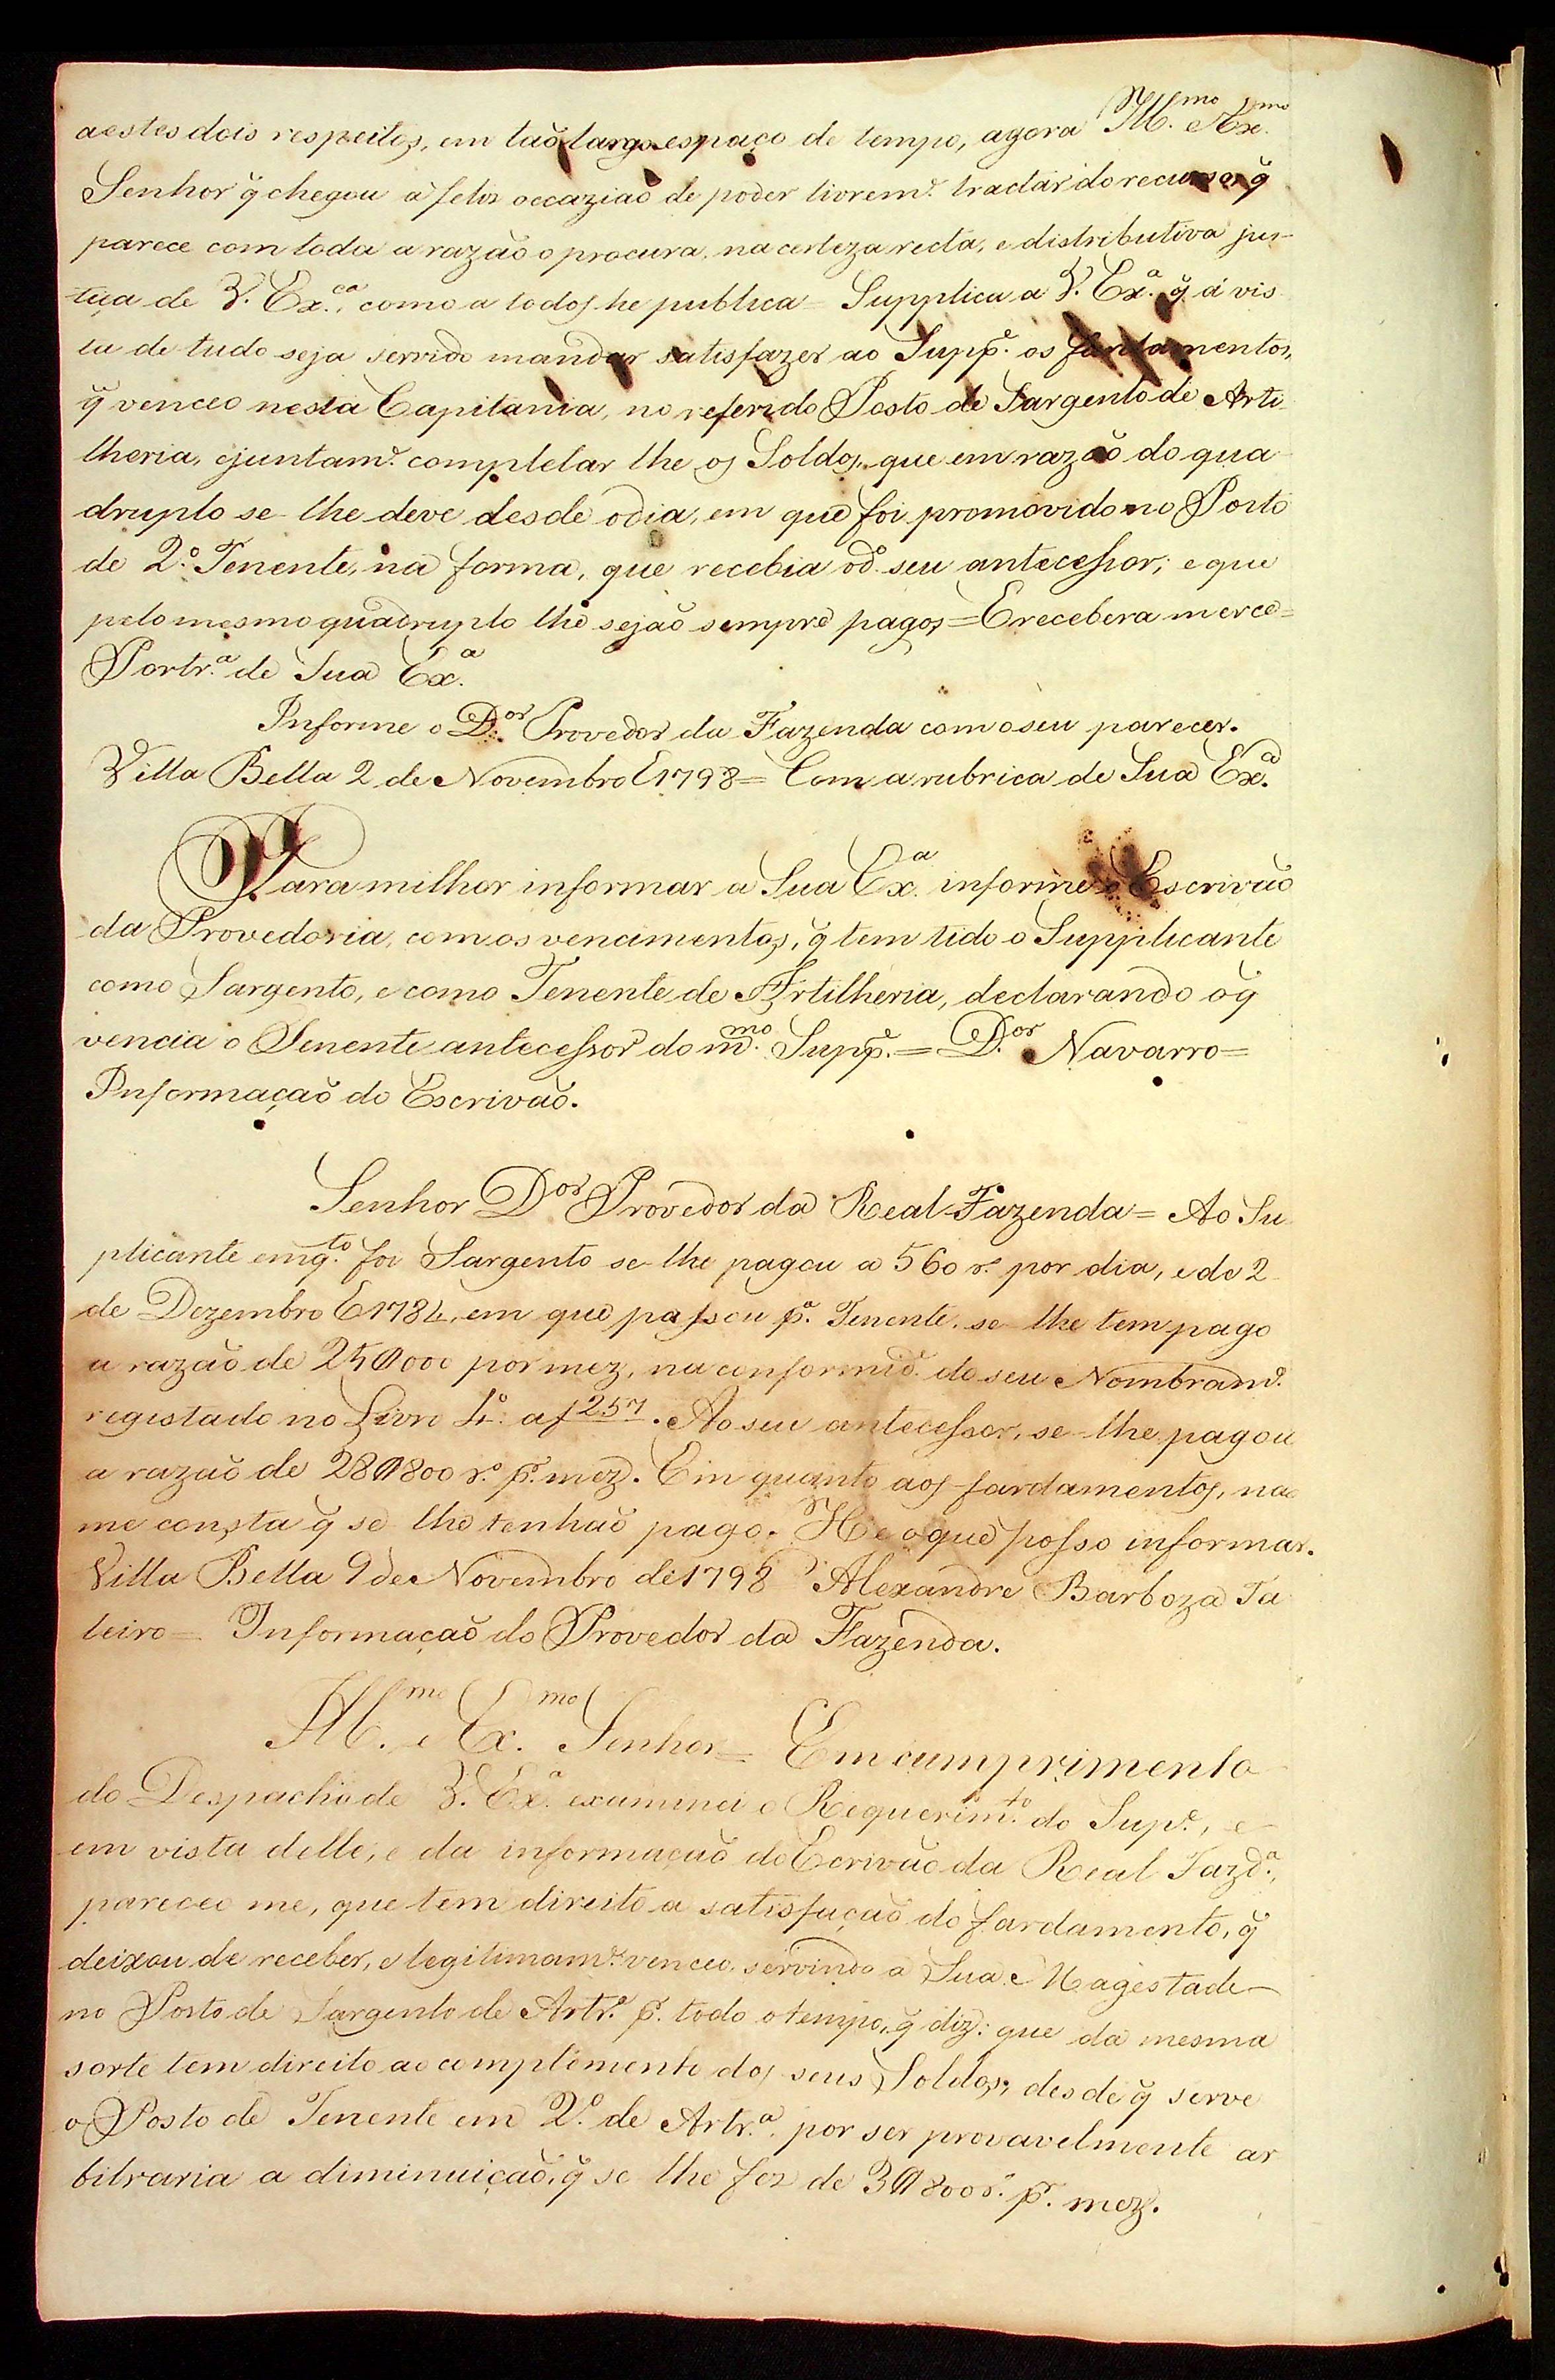 aestes dois respeitos, em taõ largo espaço de tempo, agora Ill.mo e Ex.mo
Senhor q̃ chegou a feliz occaziaõ de poder livrem.e tractar do recurso, q̃
parece com toda a razaõ o procura, na certeza recta, e distributiva jus-
tiça de V. Ex.ca, como a todos he publica = Supplica a V. Ex.a q̃ á vis
ta de tudo seja servido mandar satisfazer ao Supp.e os fardamentos,
q̃ venceo nesta Capitania, no referido Posto de Sargento de Arti
lheria, ejuntam.e completar lhe os Soldos, que em razaõ do qua
druplo se lhe deve desde odia, em que foi promovido no Posto
de 2.o Tenente, na forma, que recebia od.o seu antecessor; e que
pelo mesmo quadruplo lhe sejaõ sempre pagos = E recebera merce =
Portr.a de Sua Ex.a
Informe o D.or Provedor da Fazenda com o seu parecer.
Villa Bella 2 de Novembro E 1798 = Com a rubrica de Sua Ex.a
Para milhor informar a Sua Ex.a informe o Escrivaõ
da Provedoria, com os vencimentos, q̃ tem tido o Supplicante
como Sargento, e como Tenente de Artilheria, declarando o q̃
vencia o Tenente antecessor do m.mo Supp.e = D.or Navarro =
Informaçaõ do Escrivaõ.
Senhor D.or Provedor da Real Fazenda = Ao Su
plicante emq.to foi Sargento se lhe pagou a 560 r.s por dia, e de 2
de Dezembro E 1784, em que passou p.a Tenente, se lhe tem pago
a razaõ de 25$000 por mez, na conformid.e do seu Nombram.e
registado no Livro 4.o a f 257. Ao seu antecessor, se lhe pagou
a razaõ de 28$800 r.s p.r mez. Em quanto aos fardamentos, nao
me consta q̃ se lhe tenhaõ pago. He o que posso informar.
Villa Bella 9 de Novembro de 1798 Alexandre Barboza Fa
leiro = Informaçaõ do Provedor da Fazenda.
Ill.mo e Ex.mo Senhor = Em cumprimento
do Despacho de V. Ex.a examinei o Requerim.to do Sup.e, e
em vista delle, e da informaçaõ do Ecrivaõ da Real Fazd.a,
pareceo me, que tem direito a satisfaçaõ do fardamento, q̃
deixou de receber, e legitimam.e venceo, servindo a Sua Magestade
no Posto de Sargento de Artr.a p.r todo o tempo, q̃ diz: que da mesma
sorte tem direito ao complemento dos seus Soldos, desde q̃ serve
o Posto de Tenente em 2.o de Artr.a por ser provavelmente ar
bitraria a diminuiçaõ, q̃ se lhe fez de 3$800 r.s p.r mez.